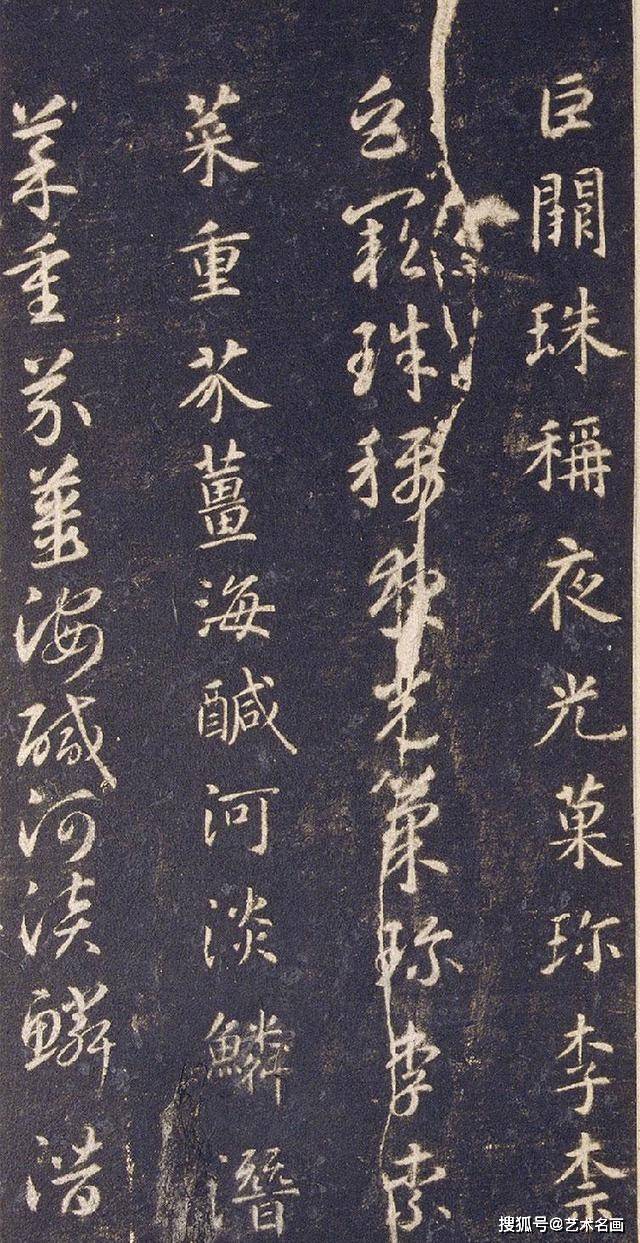 巨闕珠稱夜光菓珎李柰
巨闕珠稱夜光菓珎李柰
菜重芥薑海醎河淡鱗潛
菜重芥薑海醎河淡鱗潛
搜狐号@艺术名画